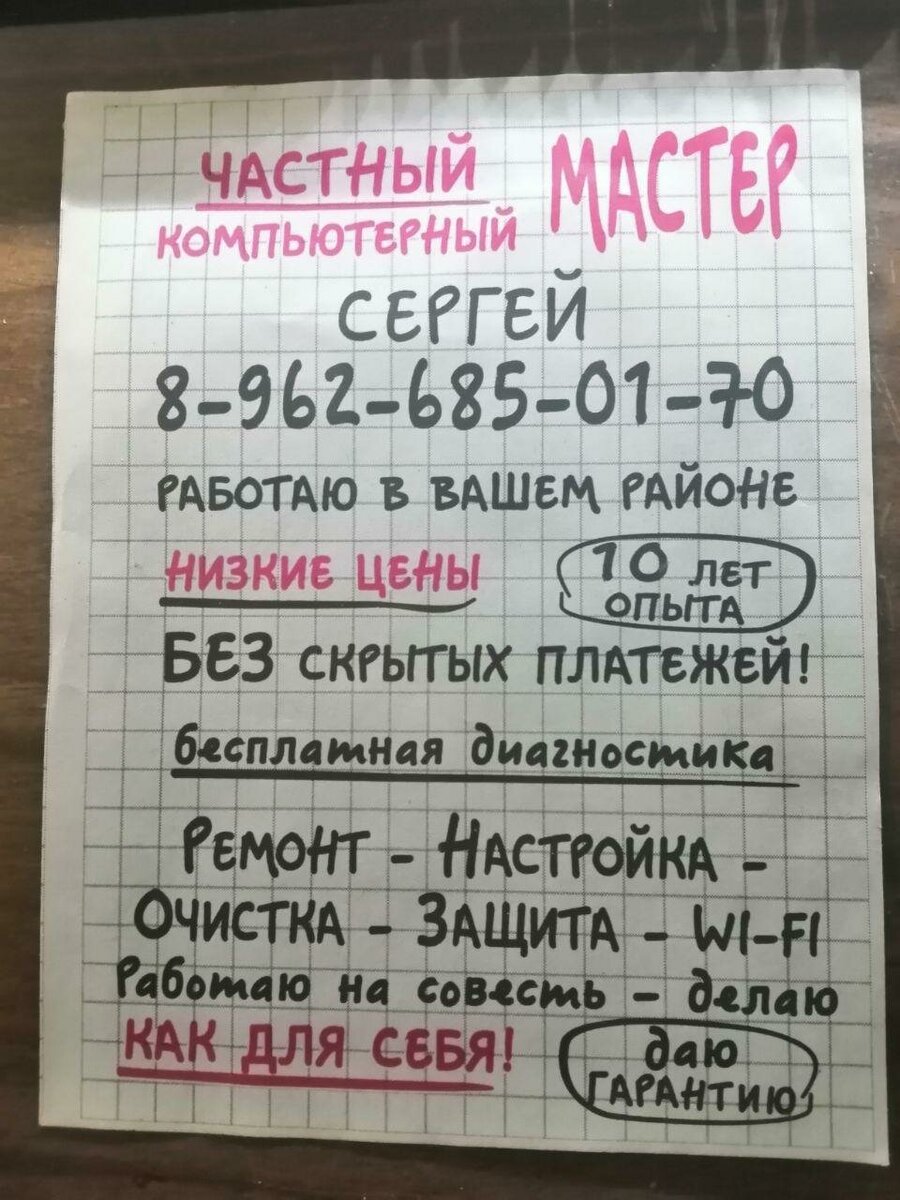 ЧАСТНЫЙ
КОМПЬЮТЕРНЫЙ МАСТЕР
СЕРГЕЙ
8-962-685-01-70
РАБОТАЮ В ВАШЕМ РАЙОНЕ
НИЗКИЕ ЦЕНЫ
10 ЛЕТ
ОПЫТА
БЕЗ СКРЫТЫХ ПЛАТЕЖЕЙ!
бесплатная диагностика
РЕМОНТ - НАСТРОЙКА -
ОЧИСТКА - ЗАЩИТА - WI-FI
Работаю на совесть - делаю
КАК ДЛЯ СЕБЯ!
даю
ГАРАНТИЮ